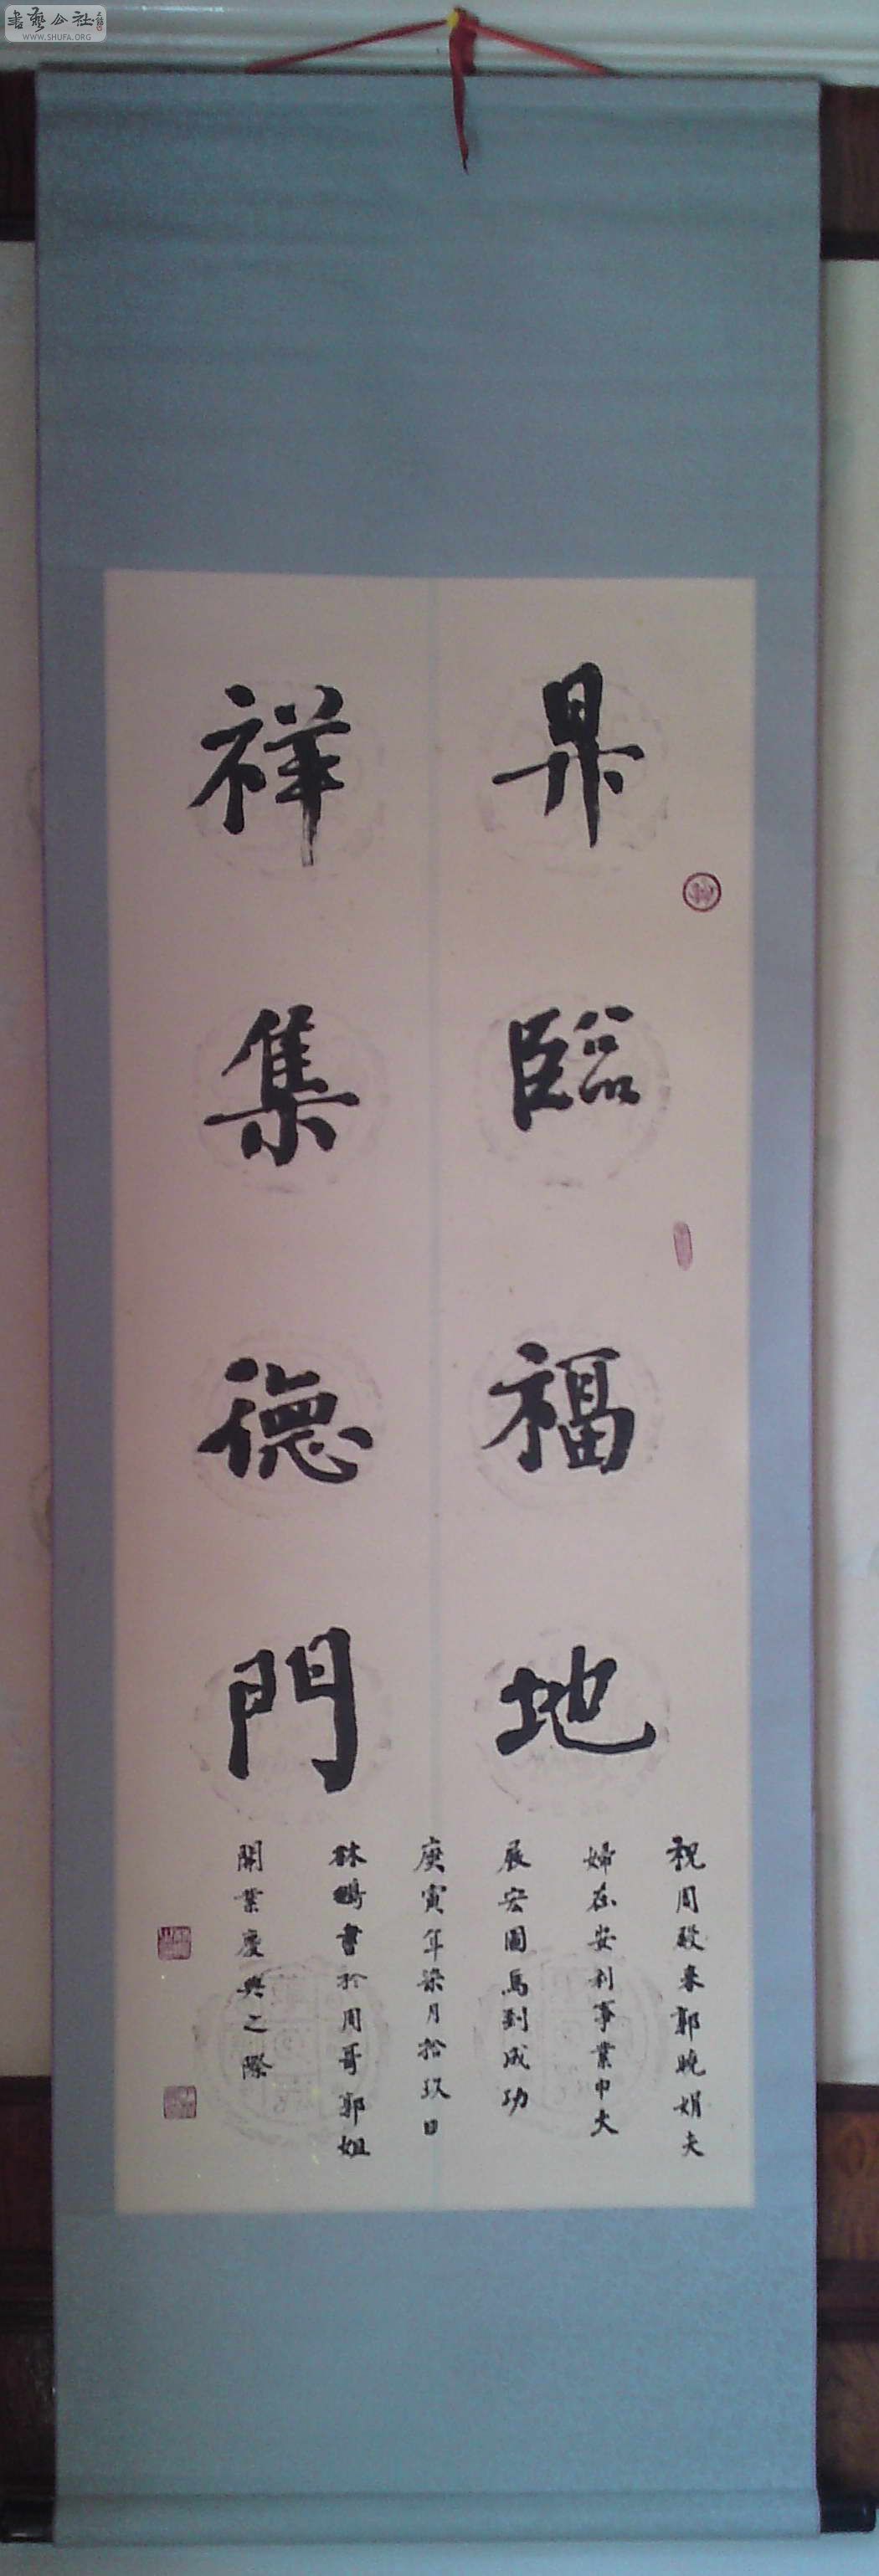 書藝公社
WWW.SHUFA.ORG
昇臨福地
祥集德門
祝周殿来郭曉娟夫
婦在安利事業中大
展宏圖馬到成功
庚寅年柒月拾玖日
林鵬書於周哥郭姐
開業慶典之際